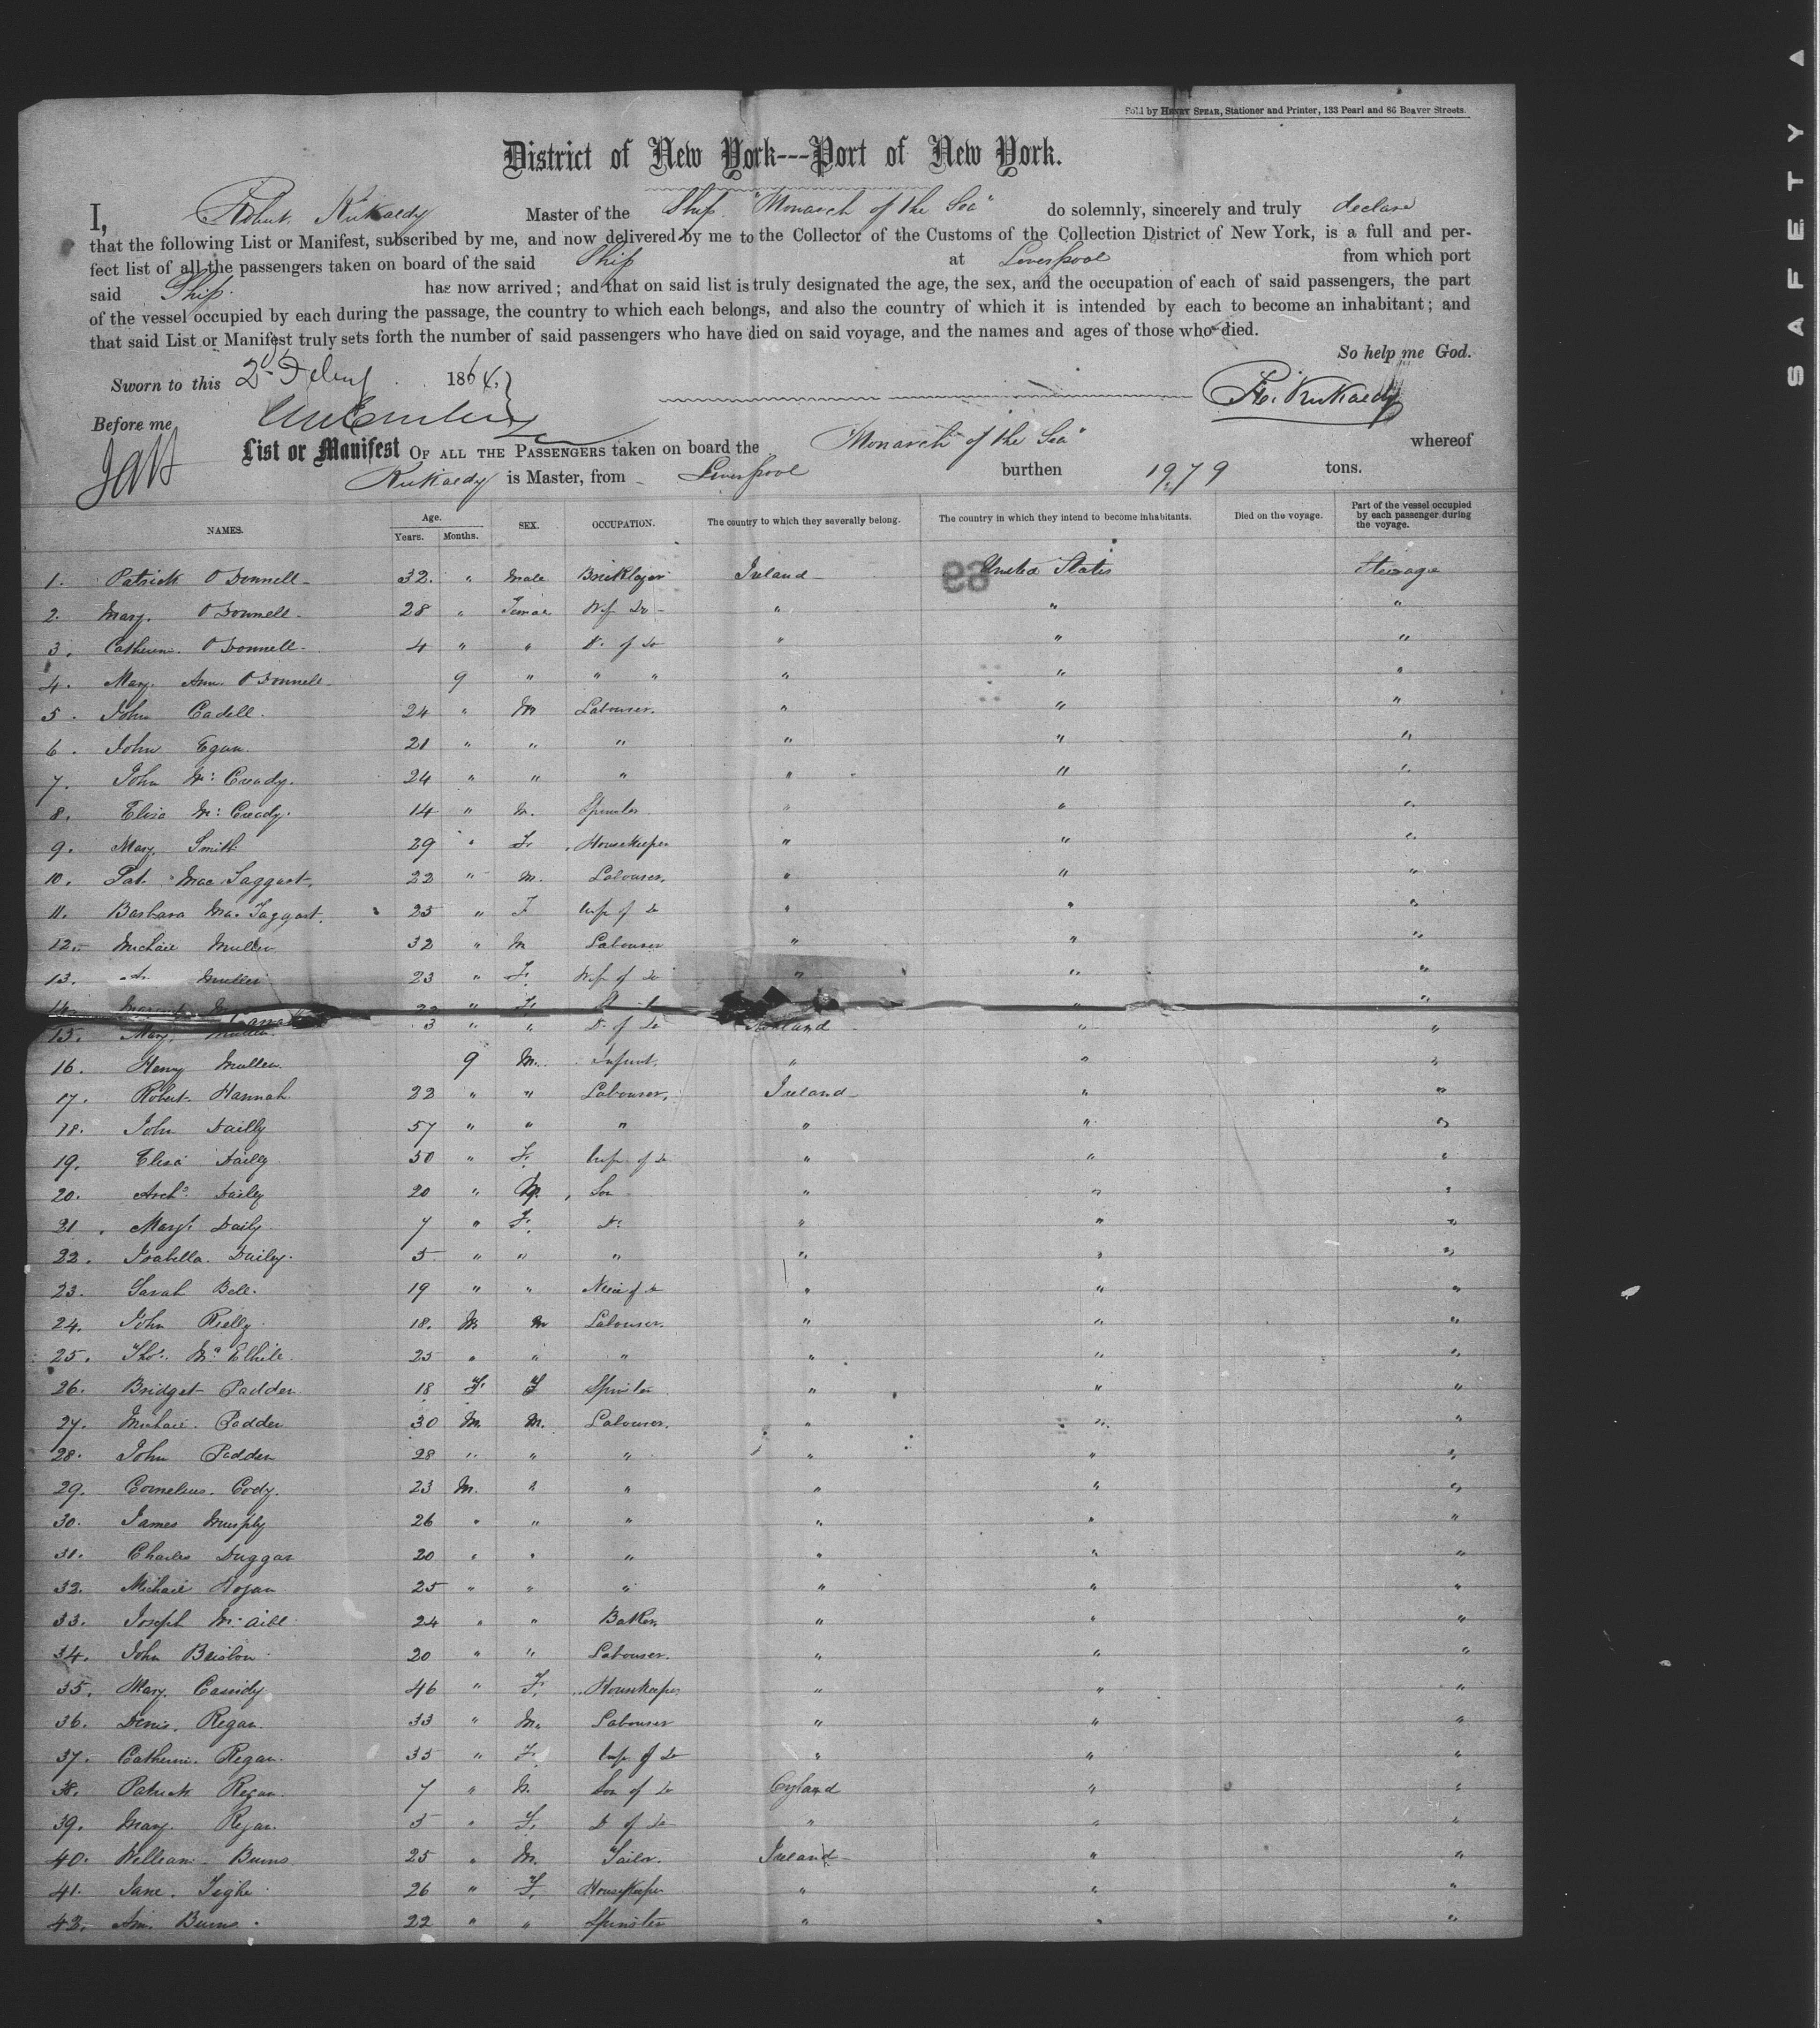 Sold by HENRY SPEAR, Stationer and Printer, 133 Pearl and 86 Beaver Streets.
District of New York---Port of New York.
I, Robert Kirkaldy Master of the Ship "Monarch of the Sea" do solemnly, sincerely and truly declare
that the following List or Manifest, subscribed by me, and now delivered by me to the Collector of the Customs of the Collection District of New York, is a full and per-
fect list of all the passengers taken on board of the said Ship at Liverpool from which port
said Ship has now arrived; and that on said list is truly designated the age, the sex, and the occupation of each of said passengers, the part
of the vessel occupied by each during the passage, the country to which each belongs, and also the country of which it is intended by each to become an inhabitant; and
that said List or Manifest truly sets forth the number of said passengers who have died on said voyage, and the names and ages of those who died.
So help me God.
Sworn to this 2d Feby 1864. R. Kirkaldy
Before me
List or Manifest OF ALL THE PASSENGERS taken on board the "Monarch of the Sea" whereof
Kirkaldy is Master, from Liverpool burthen 1979 tons.
NAMES. Age. Years. Months. SEX. OCCUPATION. The country to which they severally belong. The country in which they intend to become inhabitants. Died on the voyage. Part of the vessel occupied by each passenger during the voyage.
1. Patrick O'Donnell 32. " Male Bricklayer Ireland United States Steerage
2. Mary. O'Donnell. 28 " Femae Wif Do " " "
3. Catherine. O'Donnell. 4 " " D. of Do " " "
4. Mary Ann. O'Donnell 9 " " " " " "
5. John Cadell. 24 " M Labourer. " " "
6. John Egan. 21 " " " " " "
7. John Mc Cready. 24 " " " " " "
8. Eliza Mc Cready. 14 " M. Spinster " " "
9. Mary Smith 29 " F. Housekeeper " " "
10. Pat. Mac Taggart. 22 " M. Labourer. " " "
11. Barbara Mac Taggart. 25 " F Wife of Do " " "
12. Michael Mullen 32 " M Labourer " " "
13. Mullen 23 " F. Wife of Do " " "
14. " F. " "
15. Mary Mullen. 3 " " D. of Do " "
16. Henry Mullen. 9 M. Infant. " " "
17. Robert Hannah 22 " " Labourer. Ireland " "
18. John Dailly 57 " " " " " "
19. Eliza Dailly 50 " F. Wife of Do " " "
20. Archd. Dailey 20 " M. Son " " "
21. Margt. Daily 7 " F. Do " " "
22. Isabella. Dailey. 5 " " " " " "
23. Sarah Bell. 19 " " Neice of Do " " "
24. John Rielly 18. M M Labourer. " " "
25. Thos. 25 " " " " " "
26. Bridget Padden 18 F. F Spinster " " "
27. Michael. Padden 30 M. M. Labourer. " " "
28. John Padden 28 " " " " " "
29. Cornelius. Cody. 23 M. " " " " "
30. James Murphy 26 " " " " " "
31. Charles Duggan 20 " " " " " "
32. Michael Hogan 25 " " " " " "
33. Joseph 24 " " Baker, " " "
34. John 20 " " Labourer. " " "
35. Mary. Cassidy 46 " F. Housekeeper. " " "
36. Denis. Regan. 33 " M. Labourer " " "
37. Catherine. Regan. 35 " F. Wife of Do " " "
38. Patrick Regan. 7 " M. Son of Do England " "
39. Mary. Regan. 5 " F. D of Do " " "
40. William. Burns 25 " M. Tailor. Ireland " "
41. Jane. Tighe 26 " F. Housekeeper " " "
42. Ann. Burns. 22 " " Spinster " " "
SAFETY A